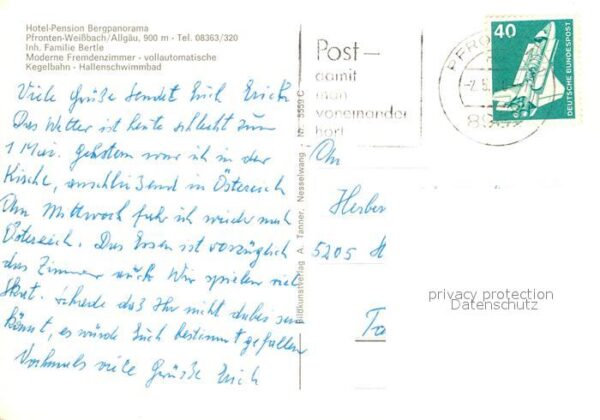 Hotel-Pension Bergpanorama
Pfronten-Weißbach/Allgäu, 900 m - Tel. 08363/320
Inh. Familie Bertle
Moderne Fremdenzimmer - vollautomatische
Kegelbahn - Hallenschwimmbad
Viele Grüße sendet Euch
Das Wetter ist heute schlecht zum
1 Mai. Gestern war ich in der
Kirche, anschließend in Österreich
Am Mittwoch fuhr ich wieder nach
Österreich. Das Essen ist vorzüglich
das Zimmer auch Wir spielen viel
Skat. Schade das Ihr nicht dabei sein
könnt, es würde Euch bestimmt gefallen
Nochmals viele Grüsse Erich
Bildkunstverlag A. Tanner, Nesselwang Nr. 5559 C
Post-
damit
man
voneinander
hört
PFRO
8962
40
DEUTSCHE BUNDESPOST
An
Herber
5205 H
privacy protection
Datenschutz